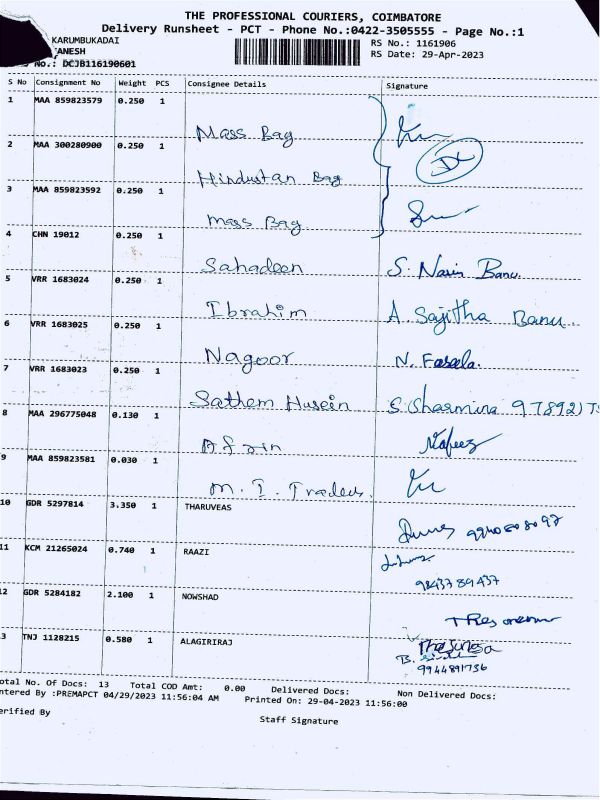 THE PROFESSIONAL COURIERS, COIMBATORE
Delivery Runsheet - PCT - Phone No.:0422-3505555 - Page No.:1
KARUMBUKADAI
ANESH
No.: DCJB116190601
RS No.: 1161906
RS Date: 29-Apr-2023
S No Consignment No Weight PCS Consignee Details Signature
1 MAA 859823579 0.250 1
Mass Bag
2 MAA 300280900 0.250 1
Hindustan Bag
3 MAA 859823592 0.250 1
Mass Bag
4 CHN 19012 0.250 1
Sahadeen S. Navin Banu.
5 VRR 1683024 0.250 1
Ibrahim A. Sajitha Banu.
6 VRR 1683025 0.250 1
Nagoor N. Faseela.
7 VRR 1683023 0.250 1
Sathem Husein S. Sharmina 97892)
8 MAA 296775048 0.130 1
Afrin Nafeez
9 MAA 859823581 0.030 1
M. I. Traders.
10 GDR 5297814 3.350 1 THARUVEAS
11 KCM 21265024 0.740 1 RAAZI
9843789437
2 GDR 5284182 2.100 1 NOWSHAD
3 TNJ 1128215 0.580 1 ALAGIRIRAJ
B.
9944891736
otal No. Of Docs: 13 Total COD Amt: 0.00 Delivered Docs: Non Delivered Docs:
ntered By :PREMAPCT 04/29/2023 11:56:04 AM Printed On: 29-04-2023 11:56:00
erified By Staff Signature